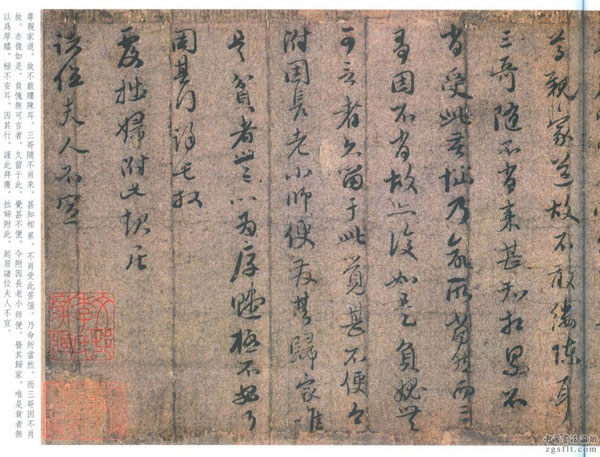 尊親家道故不敢縷陳耳
三哥隨不肖來甚知相累不
肖受此苦惱乃命所當然而三
哥因不肖故亦復如是負愧無
可言者久留于此覺甚不便今
附因長老小師便發其歸家唯
是貧者無以為厚贐極不安耳
因其行謹此拜
覆拙婦附此起居
諸位夫人不宣
尊親家道、故不敢縷陳耳。三哥隨不肖來、甚知相累、不肖受此苦惱、乃命所當然、而三哥因不肖
故、亦復如是、負愧無可言者、久留于此、覺甚不便、今附因長老小師便、發其歸家、唯是貧者無
以爲厚贐、極不安耳、因其行、謹此拜覆、拙婦附此、起居諸位夫人不宣。
zgsflt.com